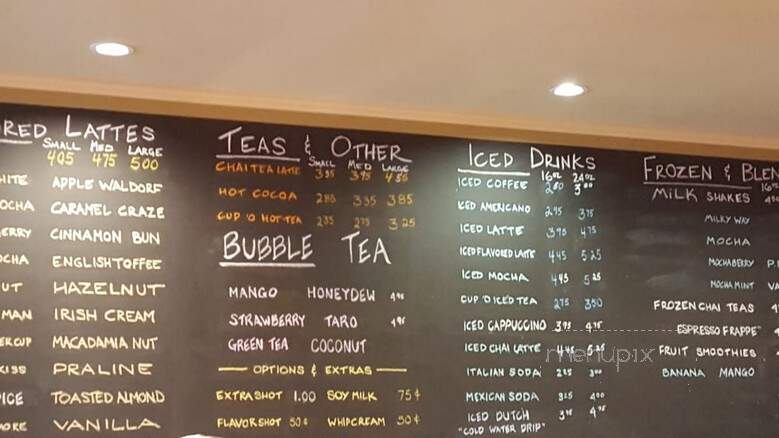 RED LATTES
SMALL MED LARGE
405 475 500
HITE APPLE WALDORF
OCHA CARAMEL CRAZE
ERRY CINNAMON BUN
OCHA ENGLISH TOFFEE
UT HAZELNUT
MAN IRISH CREAM
ERCUP MACADAMIA NUT
KISS PRALINE
PICE TOASTED ALMOND
MORE VANILLA
TEAS & OTHER
SMALL MED LARGE
CHAI TEA LATTE 395
HOT COCOA 335 385
CUP 'O HOT TEA 235 275 325
BUBBLE TEA
MANGO HONEYDEW
STRAWBERRY TARO
GREEN TEA COCONUT
OPTIONS & EXTRAS
EXTRA SHOT 1.00 SOY MILK 75¢
FLAVOR SHOT 50¢ WHIPCREAM 50¢
ICED DRINKS
16oz 24oz
ICED COFFEE
ICED AMERICANO 295 375
ICED LATTE 395 475
ICED FLAVORED LATTE 445 525
ICED MOCHA 445 525
CUP 'O ICED TEA 275 350
ICED CAPPUCCINO 395 475
ICED CHAI LATTE 445 525
ITALIAN SODA 300
MEXICAN SODA 400
ICED DUTCH 475
"COLD WATER DRIP"
FROZEN & BLEN
MILK SHAKES
MILKY WAY
MOCHA
MOCHABERRY
MOCHA MINT VA
FROZEN CHAI TEAS
ESPRESSO FRAPPE
FRUIT SMOOTHIES
BANANA MANGO
menupix